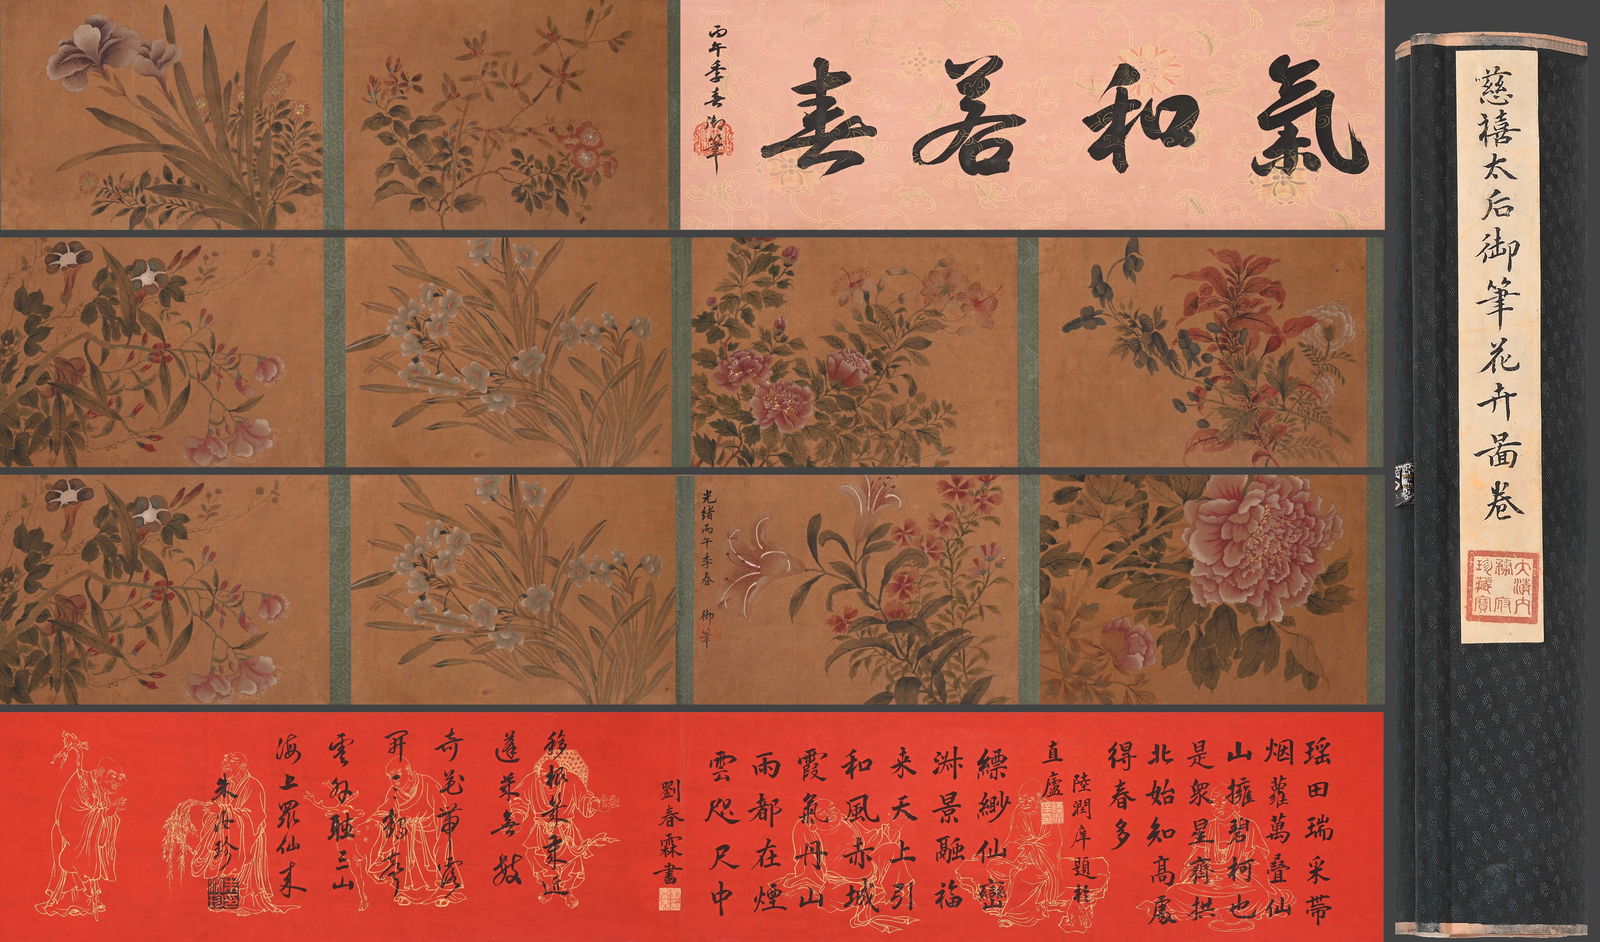 氣和若春
丙午季春御筆
慈禧太后御筆花卉圖卷
大清內
務府
珍藏寶
光緒丙午季春 御筆
瑶田瑞采帶
烟蘿萬叠仙
山擁碧柯也
是衆星齊拱
北始知高處
得春多
陸潤庠題於
直廬
縹緲仙巒
淑景融福
来天上引
和風赤城
霞氣丹山
雨都在煙
雲咫尺中
劉春霖書
移根
蓬萊無數
奇花
雲外
三山
海上羣仙来
朱汝珍